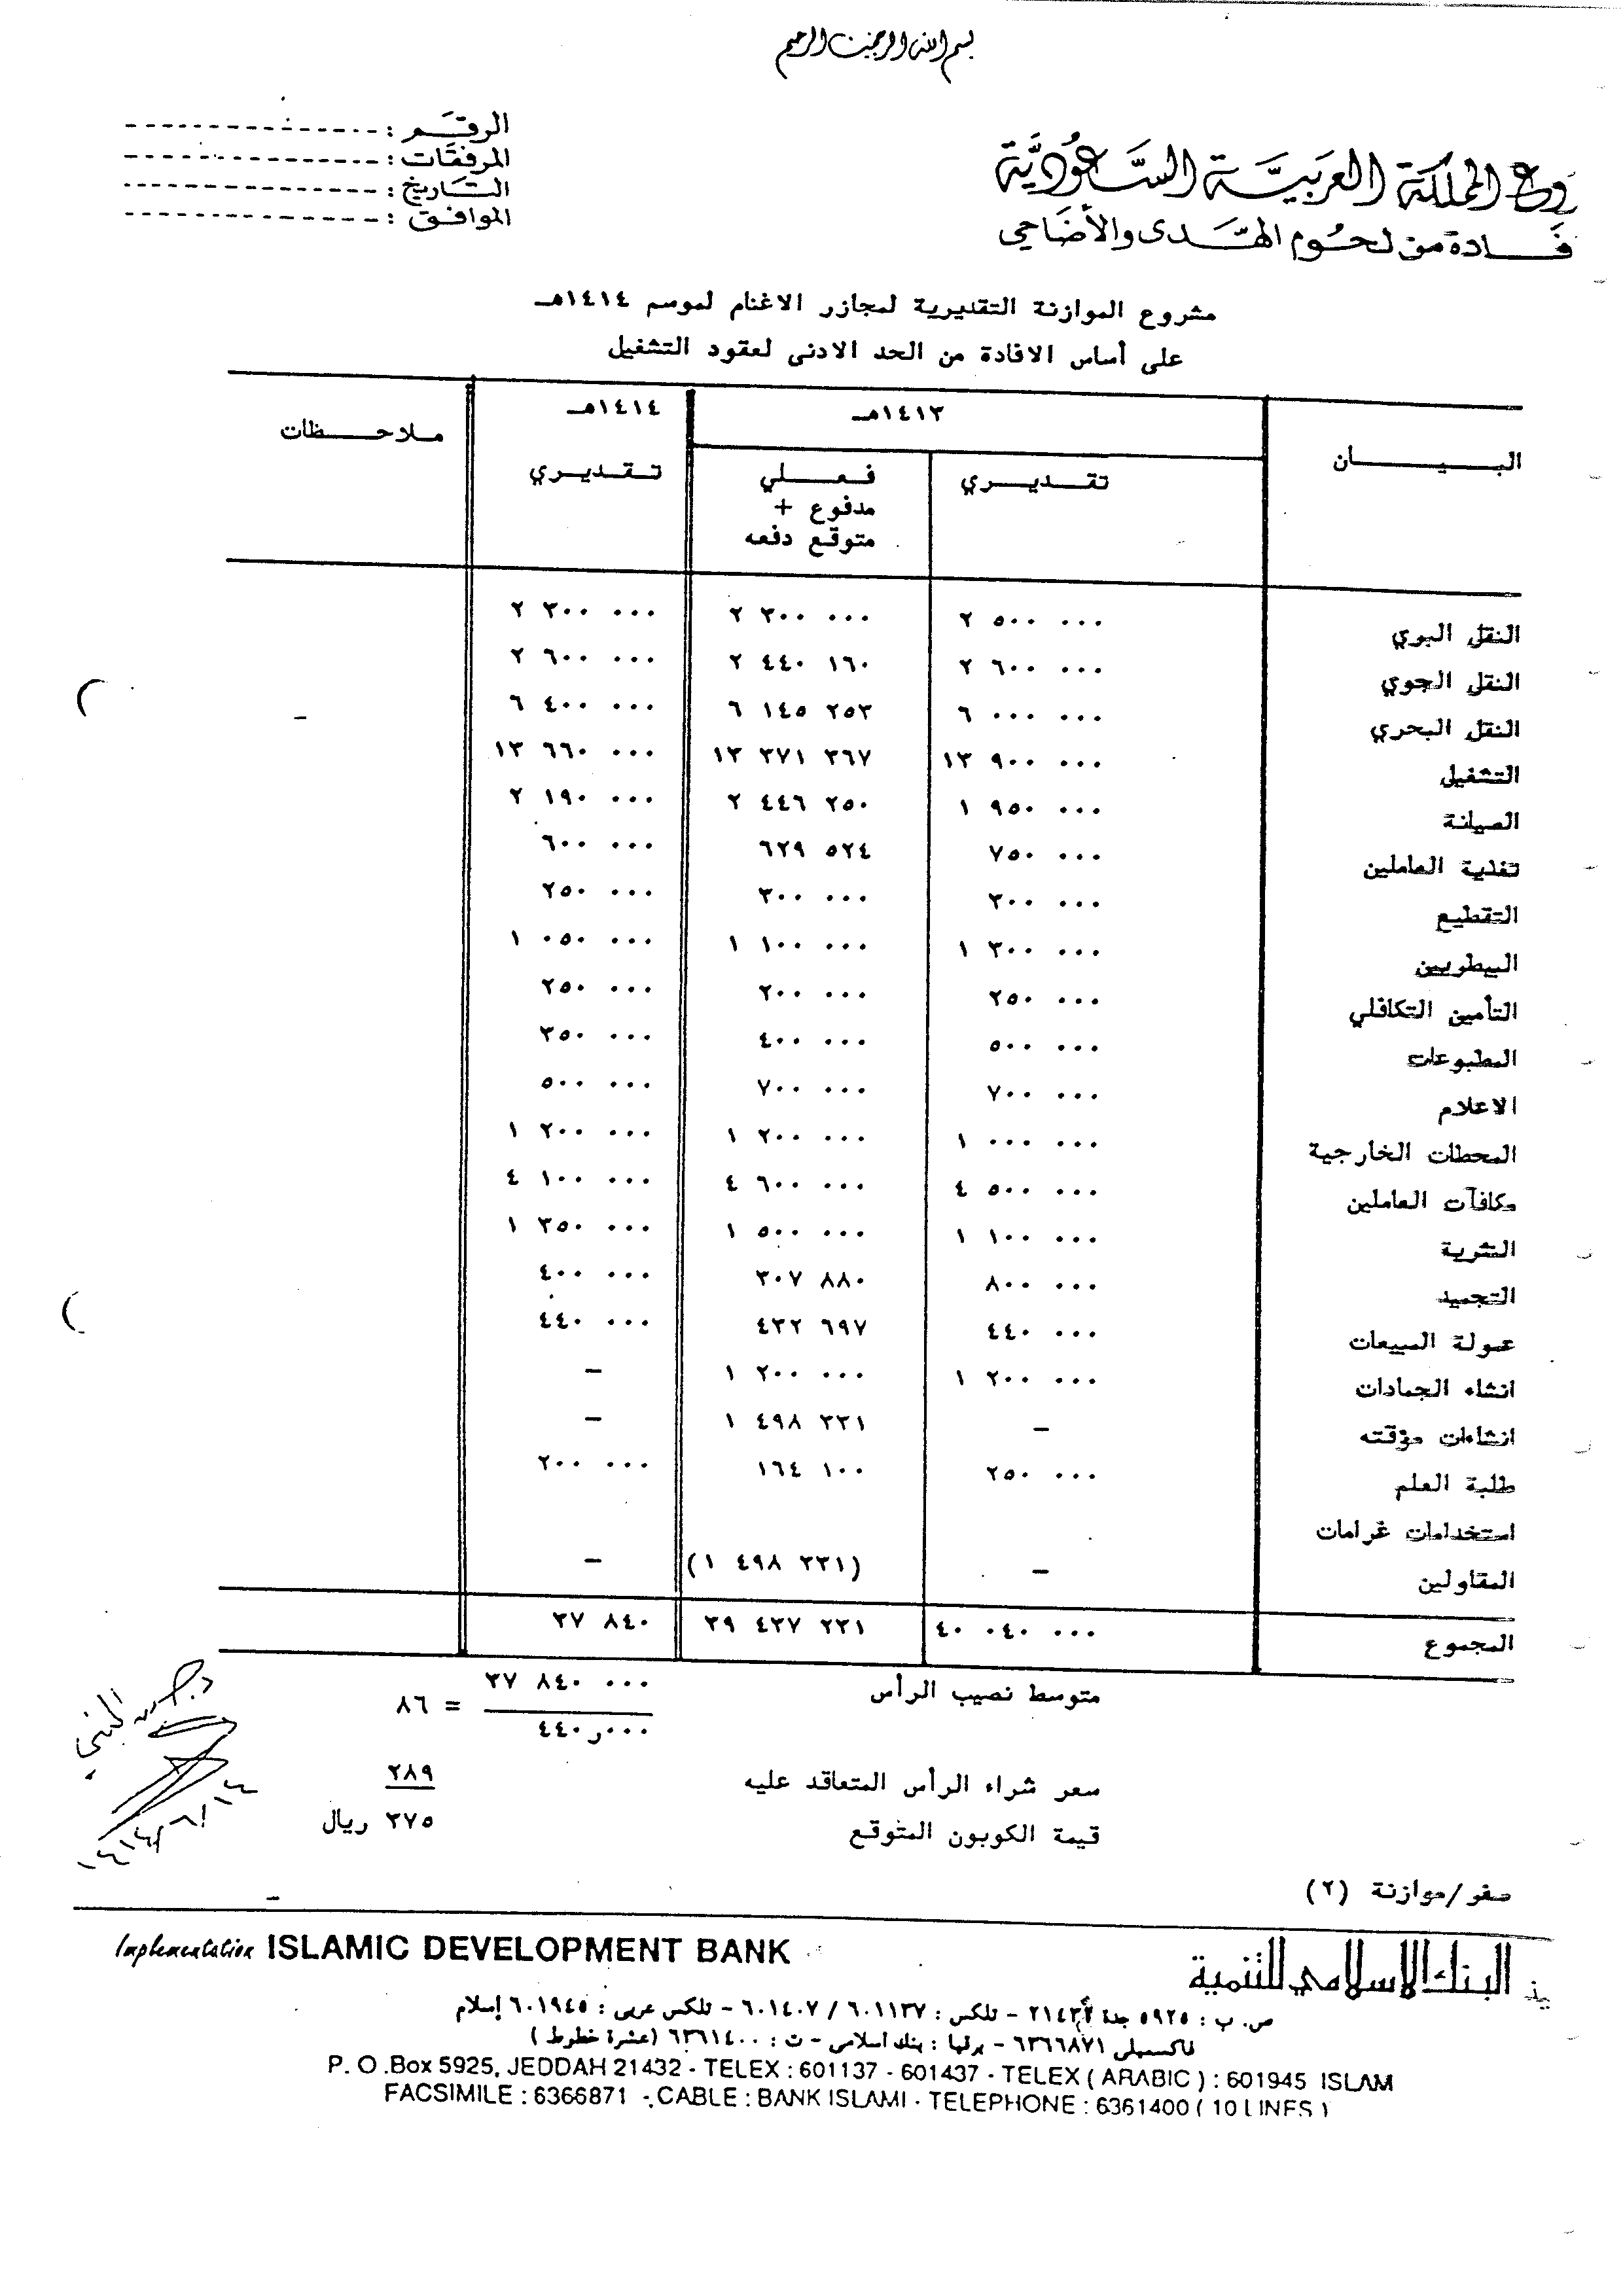 بسم الله الرحمن الرحيم
الرقم : ---------------
المرفقات : ---------------
التاريخ : ---------------
الموافق : ---------------
المملكة العربية السعودية
فادة من لحوم الهدى والأضاحي
مشروع الموازنة التقديرية لمجازر الاغنام لموسم ١٤١٤هـ
على أساس الافادة من الحد الادنى لعقود التشغيل
البيان ١٤١٣هـ ١٤١٤هـ ملاحظات
تقديري فعلي تقديري
مدفوع +
متوقع دفعه
النقل البري ٢ ٥٠٠ ٠٠٠ ٢ ٣٠٠ ٠٠٠ ٢ ٣٠٠ ٠٠٠
النقل الجوي ٢ ٦٠٠ ٠٠٠ ٢ ٤٤٠ ١٦٠ ٢ ٦٠٠ ٠٠٠
النقل البحري ٦ ٠٠٠ ٠٠٠ ٦ ١٤٥ ٢٥٣ ٦ ٤٠٠ ٠٠٠
التشغيل ١٣ ٩٠٠ ٠٠٠ ١٣ ٣٧١ ٣٦٧ ١٣ ٦٦٠ ٠٠٠
الصيانة ١ ٩٥٠ ٠٠٠ ٢ ٤٤٦ ٢٥٠ ٢ ١٩٠ ٠٠٠
تغذية العاملين ٧٥٠ ٠٠٠ ٦٢٩ ٥٢٤ ٦٠٠ ٠٠٠
التقطيع ٣٠٠ ٠٠٠ ٣٠٠ ٠٠٠ ٢٥٠ ٠٠٠
البيطريين ١ ٣٠٠ ٠٠٠ ١ ١٠٠ ٠٠٠ ١ ٠٥٠ ٠٠٠
التأمين التكافلي ٢٥٠ ٠٠٠ ٢٠٠ ٠٠٠ ٢٥٠ ٠٠٠
المطبوعات ٥٠٠ ٠٠٠ ٤٠٠ ٠٠٠ ٣٥٠ ٠٠٠
الاعلام ٧٠٠ ٠٠٠ ٧٠٠ ٠٠٠ ٥٠٠ ٠٠٠
المحطات الخارجية ١ ٠٠٠ ٠٠٠ ١ ٢٠٠ ٠٠٠ ١ ٢٠٠ ٠٠٠
مكافآت العاملين ٤ ٥٠٠ ٠٠٠ ٤ ٦٠٠ ٠٠٠ ٤ ١٠٠ ٠٠٠
النثرية ١ ١٠٠ ٠٠٠ ١ ٥٠٠ ٠٠٠ ١ ٣٥٠ ٠٠٠
التجميد ٨٠٠ ٠٠٠ ٣٠٧ ٨٨٠ ٤٠٠ ٠٠٠
عمولة المبيعات ٤٤٠ ٠٠٠ ٤٣٢ ٦٩٧ ٤٤٠ ٠٠٠
انشاء الجمادات ١ ٢٠٠ ٠٠٠ ١ ٢٠٠ ٠٠٠ -
انشاءات مؤقته - ١ ٤٩٨ ٢٣١ -
طلبة العلم ٢٥٠ ٠٠٠ ١٦٤ ١٠٠ ٢٠٠ ٠٠٠
استخدامات غرامات
المقاولين - (١ ٤٩٨ ٢٣١) -
المجموع ٤٠ ٠٤٠ ٠٠٠ ٣٩ ٤٣٧ ٢٣١ ٣٧ ٨٤٠
متوسط نصيب الرأس ٣٧ ٨٤٠ ٠٠٠ = ٨٦
٤٤٠ر٠٠٠
سعر شراء الرأس المتعاقد عليه ٢٨٩
قيمة الكوبون المتوقع ٣٧٥ ريال
صقر/موازنة (٢)
Implementation ISLAMIC DEVELOPMENT BANK
البنك الإسلامي للتنمية
ص. ب : ٥٩٢٥ جدة ٢١٤٣٢ - تلكس : ٦٠١١٣٧ / ٦٠١٤٠٧ - تلكس عربى : ٦٠١٩٤٥ إسلام
فاكسميلى ٦٣٦٦٨٧١ - برقيا : بنك اسلامى - ت : ٦٣٦١٤٠٠ (عشرة خطوط)
P. O .Box 5925, JEDDAH 21432 - TELEX : 601137 - 601437 - TELEX ( ARABIC ) : 601945 ISLAM
FACSIMILE : 6366871 - CABLE : BANK ISLAMI - TELEPHONE : 6361400 ( 10 LINES )